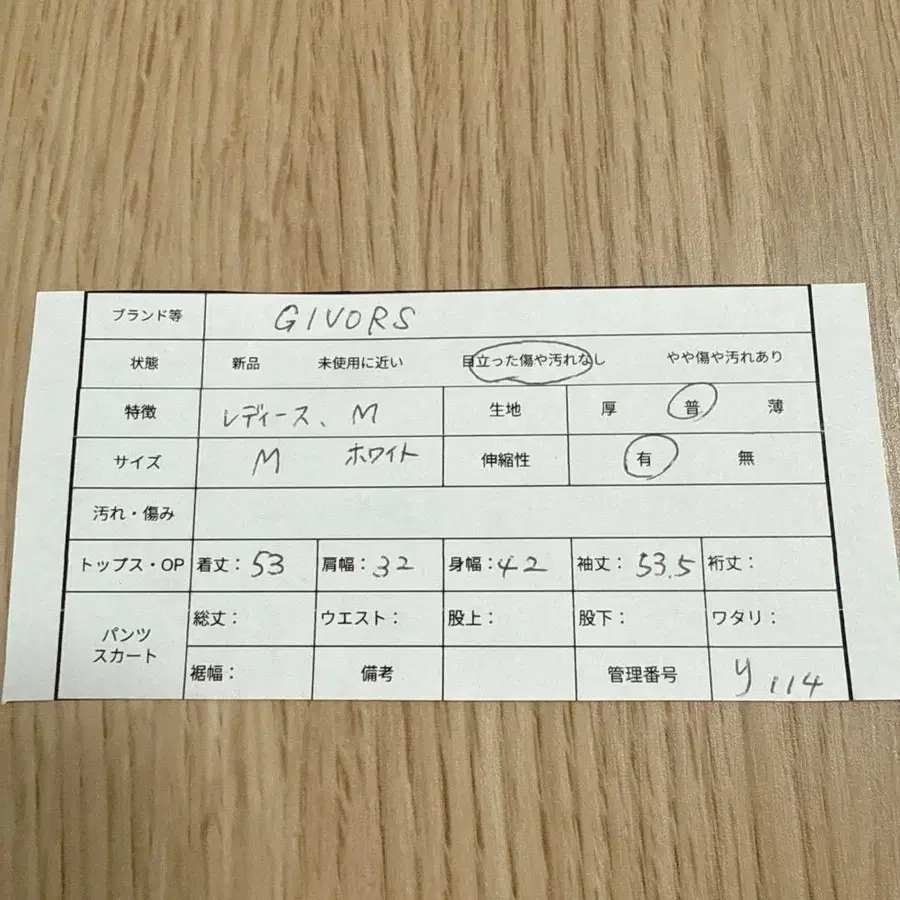 ブランド等 GIVORS
状態 新品 未使用に近い 目立った傷や汚れなし やや傷や汚れあり
特徴 レディース、M 生地 厚 普 薄
サイズ M ホワイト 伸縮性 有 無
汚れ・傷み
トップス・OP 着丈：53 肩幅：32 身幅：42 袖丈：53.5 裄丈：
パンツ スカート 総丈： ウエスト： 股上： 股下： ワタリ：
裾幅： 備考 管理番号 y 114